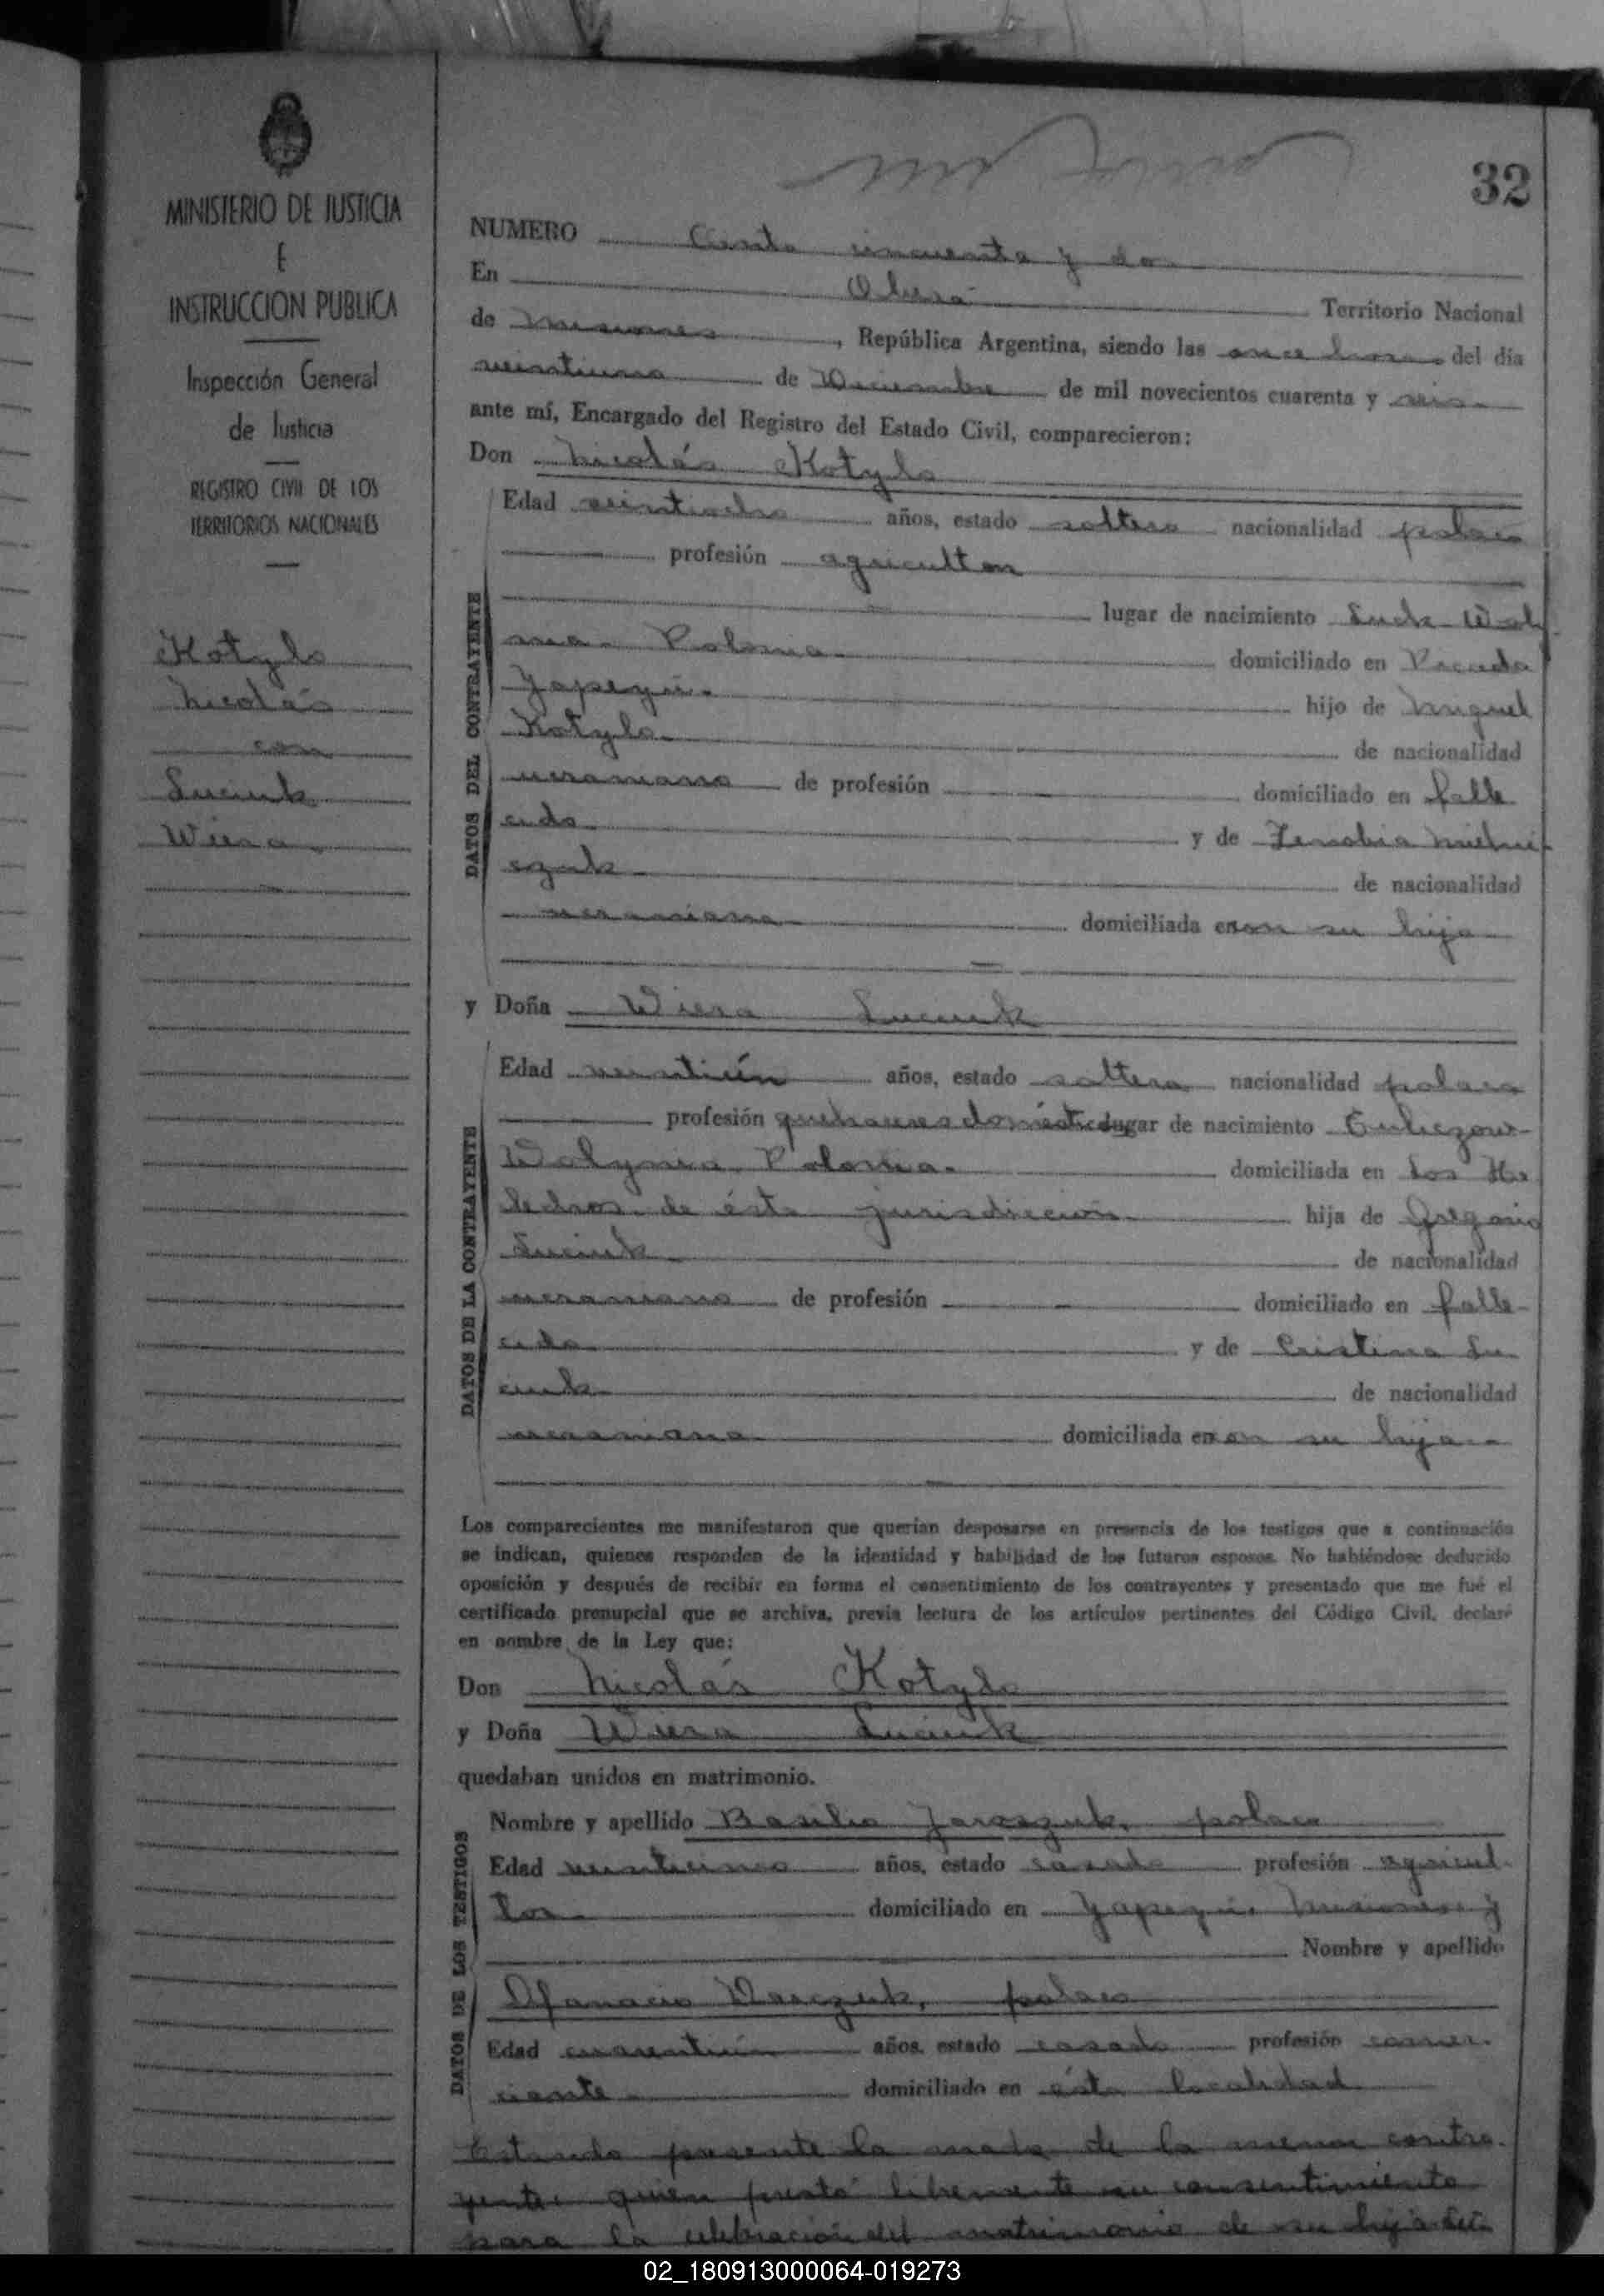 32
MINISTERIO DE JUSTICIA
E
INSTRUCCION PUBLICA
Inspección General
de Justicia
REGISTRO CIVIL DE LOS
TERRITORIOS NACIONALES
Kotylo
Nicolás
con
Luciuk
Wiera
NUMERO Ciento cincuenta y dos
En Oberá Territorio Nacional
de Misiones, República Argentina, siendo las once horas del día
veintiuno de Diciembre de mil novecientos cuarenta y seis
ante mí, Encargado del Registro del Estado Civil, comparecieron:
Don Nicolás Kotylo
DATOS DEL CONTRAYENTE
Edad veintiocho años, estado soltero nacionalidad polaco
profesión agricultor
lugar de nacimiento Luck Woly-
nia- Polonia- domiciliado en Picada
Yapeyú- hijo de Miguel
Kotylo- de nacionalidad
ucraniano de profesión domiciliado en falle
cido y de Zenobia Mielni-
czuk de nacionalidad
ucraniana domiciliada en con su hijo
y Doña Wiera Luciuk
DATOS DE LA CONTRAYENTE
Edad veintiún años, estado soltera nacionalidad polaca
profesión quehaceres domésticos lugar de nacimiento
Wolynia Polonia- domiciliada en Los He
lechos- de ésta jurisdicción- hija de Gregorio
Luciuk de nacionalidad
ucraniano de profesión domiciliado en falle-
cido y de Cristina Lu
ciuk de nacionalidad
ucraniana domiciliada en con su hija-
Los comparecientes me manifestaron que querían desposarse en presencia de los testigos que a continuación
se indican, quienes responden de la identidad y habilidad de los futuros esposos. No habiéndose deducido
oposición y después de recibir en forma el consentimiento de los contrayentes y presentado que me fué el
certificado prenupcial que se archiva, previa lectura de los artículos pertinentes del Código Civil, declaré
en nombre de la Ley que:
Don Nicolás Kotylo
y Doña Wiera Luciuk
quedaban unidos en matrimonio.
DATOS DE LOS TESTIGOS
Nombre y apellido Basilio Jaroszuk, polaco
Edad veinticinco años, estado casado profesión agricul-
tor domiciliado en Yapeyú- Misiones y
Nombre y apellido
Afanacio polaco
Edad cuarentiún años, estado casado profesión comer-
ciante domiciliado en ésta localidad
Estando presente la madre de la menor contra-
yente quien prestó libremente su consentimiento
para la celebración del matrimonio de su hija
02_180913000064-019273